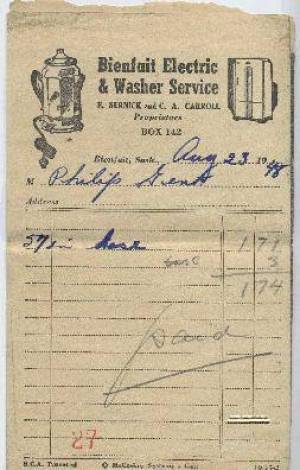 Bienfait Electric
& Washer Service
F. SERNICK and C. A. CARROLL
Proprietors
BOX 142
Bienfait, Sask. Aug 23 1948
M Philip
Address
hose 1 71
3
1 74
paid
27